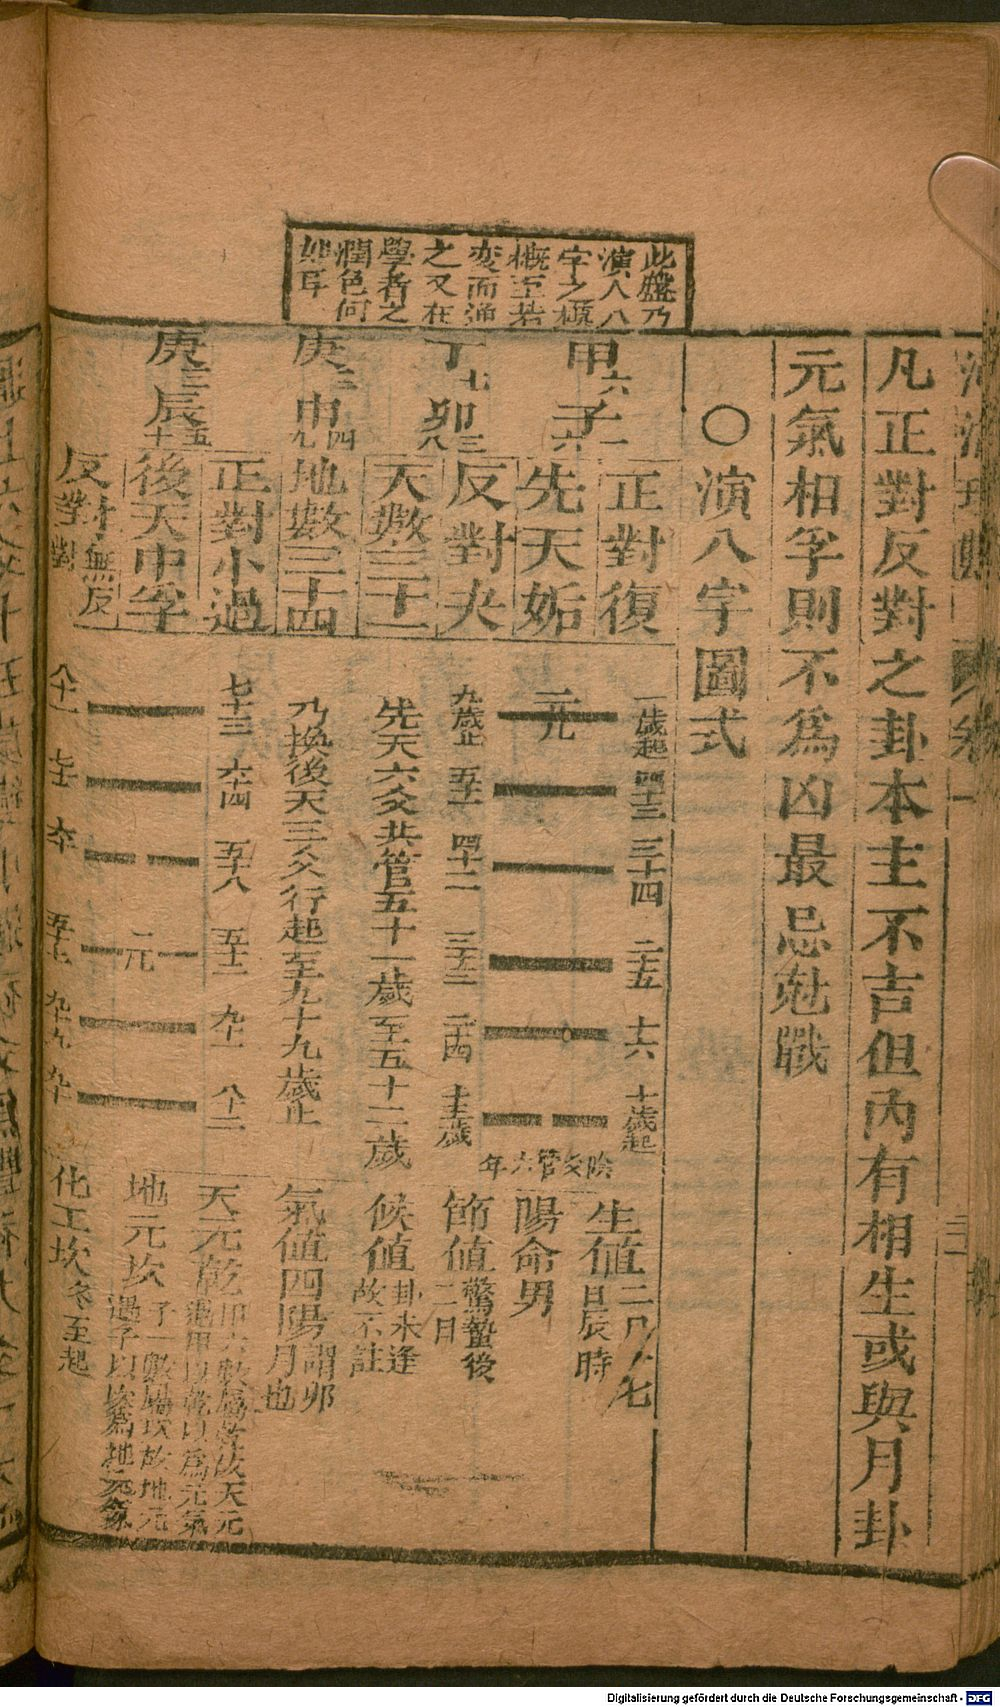 此盤乃
演八八
字之槩
概至若
変而通
之又在
學者之
潤色何
如耳
凡正對反對之卦本主不吉但內有相生或與月卦
元氣相孚則不為凶最忌尅戰
○演八字圖式
甲六子一六
丁七卯三八
庚三申四九
庚三辰五十
正對復
先天姤
反對夬
天數三十一
地數三十四
正對小過
後天中孚
反對無反對
一歲起 四十三 三十四 二十五 十六 十歲起
元
九歲止 五十一 四十二 三十三 二十四 十五歲
陰爻管六年
先天六爻共管五十一歲至五十二歲
乃換後天三爻行起至九十九歲止
七十三 六十四 五十八 五十二 九十一 八十二
元
八十一
生值二月八七日辰時
陽命男
節值驚蟄後二月
候值卦未逢故不註
氣值四陽謂卯月也
天元乾甲六數屬乾故天元遇甲以乾以為元氣
地元坎子一數屬坎故地元遇子以坎為地元氣
化工坎冬至起
Digitalisierung gefördert durch die Deutsche Forschungsgemeinschaft - DFG